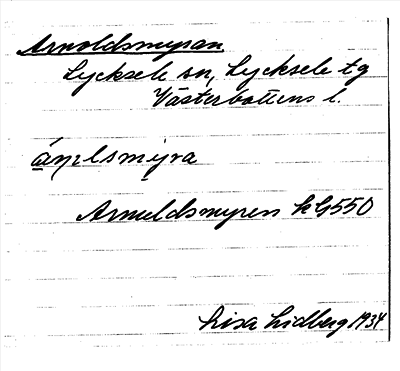 Arnoldsmyran
Lycksele sn, Lycksele tg
Västerbottens l.
Arnuldsmyren kG550
Lisa Lidberg 1934